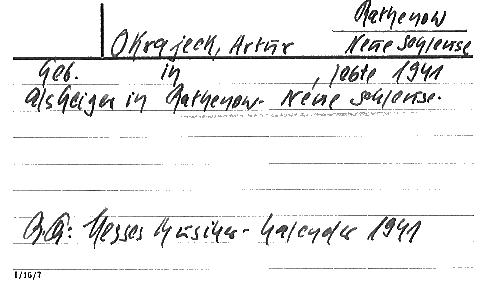 Rathenow
Okrajeck, Artur Neue Schleuse
Geb. in , lebte 1941
als Geiger in Rathenow- Neue Schleuse.
Hesses Musiker-Kalender 1941
1/16/7